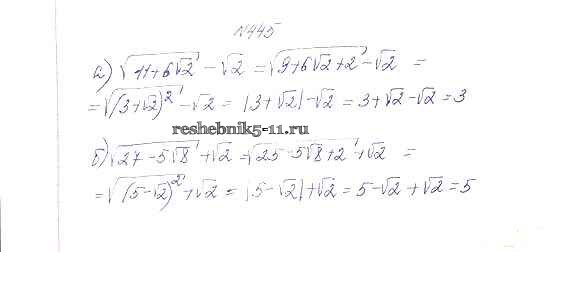 N445
а) √(11+6√2) - √2 = √(9+6√2+2) - √2 =
= √((3+√2)²) - √2 = |3+√2| - √2 = 3+√2-√2 = 3
reshebnik5-11.ru
б) √(27-5√8) + √2 = √(25-5√8+2) + √2 =
= √((5-√2)²) + √2 = |5-√2| + √2 = 5-√2+√2 = 5